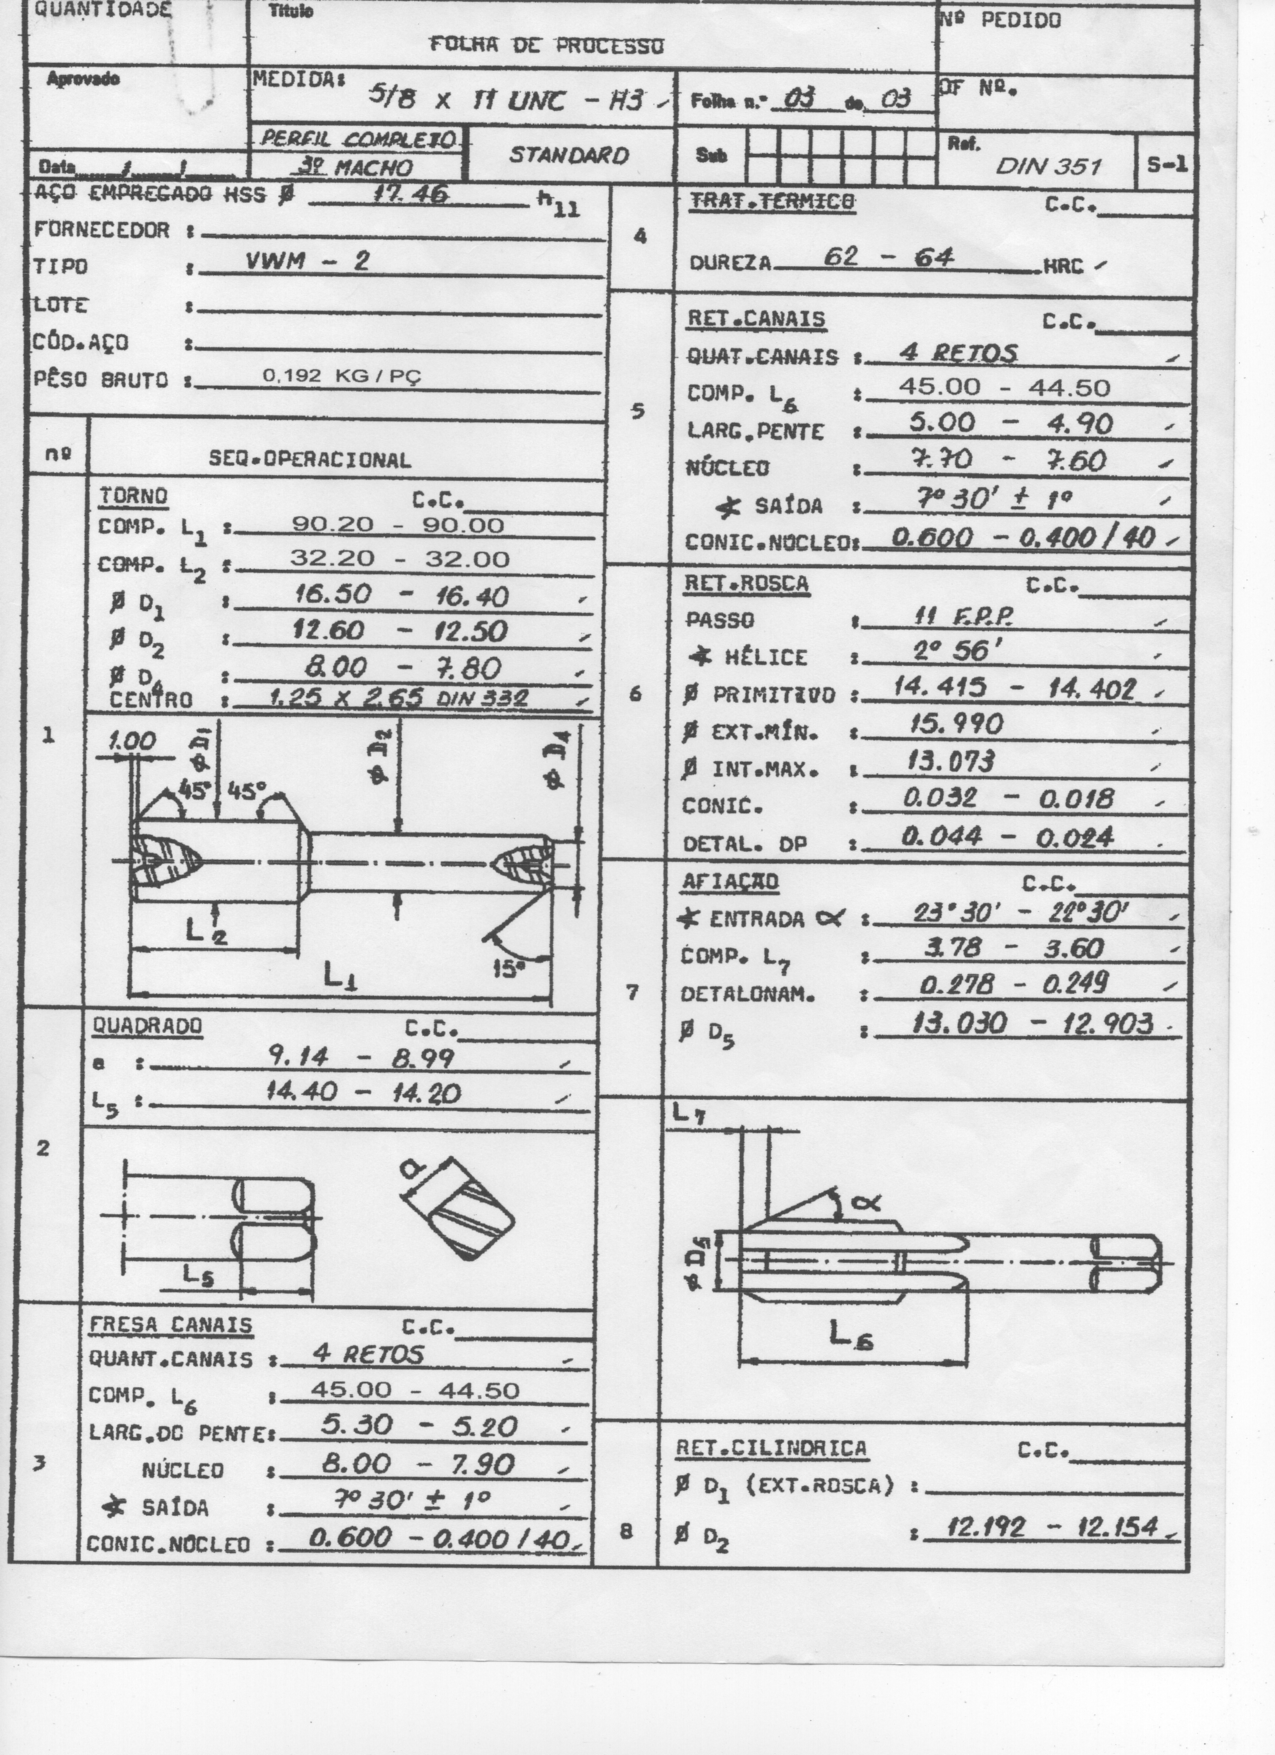 QUANTIDADE
Título
FOLHA DE PROCESSO
Nº PEDIDO
Aprovado
MEDIDA:
5/8 x 11 UNC - H3
Folha n.º 03 de 03
OF Nº.
PERFIL COMPLETO
3º MACHO
STANDARD
Sub
Ref.
DIN 351
S-1
Data / /
AÇO EMPREGADO HSS Ø 17.46 h11
FORNECEDOR :
TIPO : VWM - 2
LOTE :
CÓD.AÇO :
PÊSO BRUTO : 0,192 KG / PÇ
nº
SEQ.OPERACIONAL
1
TORNO C.C.
COMP. L1 : 90.20 - 90.00
COMP. L2 : 32.20 - 32.00
Ø D1 : 16.50 - 16.40
Ø D2 : 12.60 - 12.50
Ø D4 : 8.00 - 7.80
CENTRO : 1.25 X 2.65 DIN 332
1.00
Ø D1
Ø D2
Ø D4
45° 45°
L2
15°
L1
2
QUADRADO C.C.
a : 9.14 - 8.99
L5 : 14.40 - 14.20
a
L5
3
FRESA CANAIS C.C.
QUANT.CANAIS : 4 RETOS
COMP. L6 : 45.00 - 44.50
LARG.DO PENTE: 5.30 - 5.20
NÚCLEO : 8.00 - 7.90
∢ SAÍDA : 7º 30' ± 1º
CONIC.NÚCLEO : 0.600 - 0.400 / 40
4
TRAT.TERMICO C.C.
DUREZA 62 - 64 HRC
5
RET.CANAIS C.C.
QUAT.CANAIS : 4 RETOS
COMP. L6 : 45.00 - 44.50
LARG.PENTE : 5.00 - 4.90
NÚCLEO : 7.70 - 7.60
∢ SAÍDA : 7º 30' ± 1º
CONIC.NÚCLEO: 0.600 - 0.400 / 40
6
RET.ROSCA C.C.
PASSO : 11 F.P.P.
∢ HÉLICE : 2º 56'
Ø PRIMITIVO : 14.415 - 14.402
Ø EXT.MÍN. : 15.990
Ø INT.MAX. : 13.073
CONIC. : 0.032 - 0.018
DETAL. DP : 0.044 - 0.024
7
AFIAÇÃO C.C.
∢ ENTRADA α : 23° 30' - 22° 30'
COMP. L7 : 3.78 - 3.60
DETALONAM. : 0.278 - 0.249
Ø D5 : 13.030 - 12.903
L7
α
Ø D5
L6
8
RET.CILINDRICA C.C.
Ø D1 (EXT.ROSCA) :
Ø D2 : 12.192 - 12.154